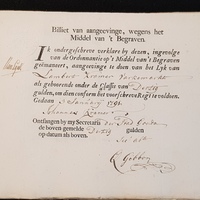 Billiet van aangeevinge, wegens het
Middel van 't Begraven.
Ik ondergeschreve verklare by dezen, ingevolge
van de Ordonnantie op 't Middel van 't Begraven
geëmaneert, aangeevinge te doen van het Lyk van
Lambert
als gehoorende onder de Classe van Dertig
gulden, om dien conform het voorschreve Regt te voldoen.
Gedaan 3 January 1791.
Johannes
Ontfangen by my Secretaris der Stad Gouda
de boven gemelde Dertig gulden
op datum als boven.